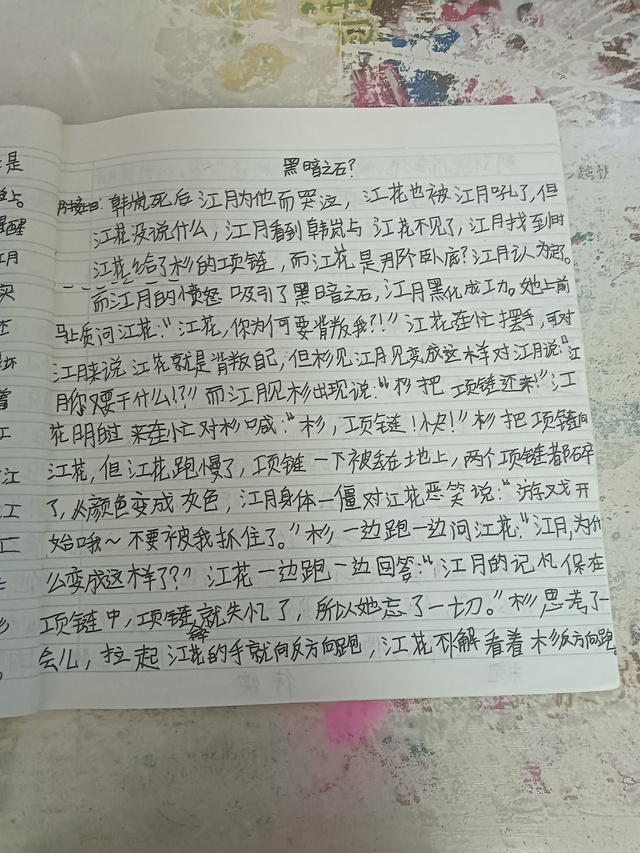 黑暗之石?
韩岚死后江月为他而哭泣，江花也被江月吼了，但
江花没说什么，江月看到韩岚与江花不见了，江月找到时
江花给了杉的项链，而江花是那个卧底?江月认为冤。
而江月的愤怒吸引了黑暗之石，江月黑化成功。她上前
马上质问江花:“江花，你为何要背叛我?!”江花连忙摆手，可对
江月来说江花就是背叛自己，但杉见江月见变成这样对江月说:“江
月你又要干什么!?”而江月见杉出现说:“杉把项链还来!”江
花明白过来连忙对杉喊:“杉，项链!快!”杉把项链向
江花，但江花跑慢了，项链一下被丢在地上，两个项链都碎
了，从颜色变成灰色，江月身体一僵对江花恶笑说:“游戏开
始哦～不要被我抓住了。”杉一边跑一边问江花:“江月,为什
么变成这样了?”江花一边跑一边回答:“江月的记忆保在
项链中，项链碎就失忆了，所以她忘了一切。”杉思考了一
会儿，拉起江花的手就向反方向跑，江花不解看着杉反方向跑
是
上。
醒
江月
买
还
坏
着
江
江
江
江